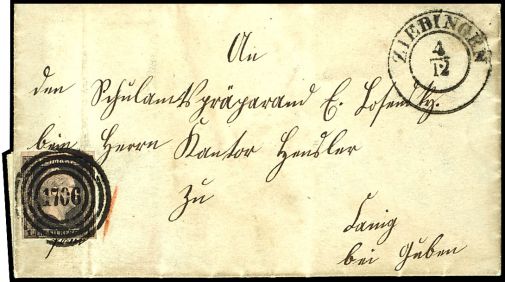 ZIEBINGEN
4
12
An
den Schulamtspräparand E. Losensky.
beim Herrn Kantor Hensler
zu
Lanig
bei Guben
1706